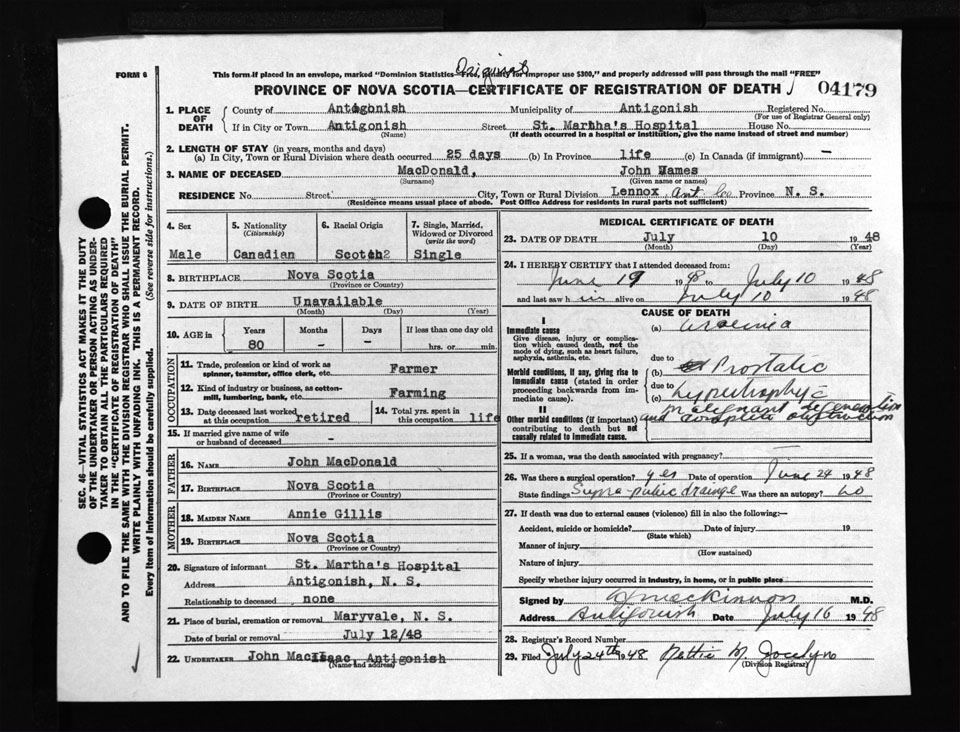 Original
FORM 6
This form if placed in an envelope, marked "Dominion Statistics—Free, Penalty for improper use $300," and properly addressed will pass through the mail "FREE"
PROVINCE OF NOVA SCOTIA—CERTIFICATE OF REGISTRATION OF DEATH
04179
1. PLACE OF DEATH County of Antogonish Municipality of Antigonish Registered No.
(For use of Registrar General only)
If in City or Town Antigonish Street St. Martha's Hospital House No.
(Name) (If death occurred in a hospital or institution, give the name instead of street and number)
2. LENGTH OF STAY (in years, months and days)
(a) In City, Town or Rural Division where death occurred 25 days (b) In Province life (c) In Canada (if immigrant) —
3. NAME OF DECEASED MacDonald, John James
(Surname) (Given name or names)
RESIDENCE No Street City, Town or Rural Division Lennox, Ant Co Province N. S.
(Residence means usual place of abode. Post Office Address for residents in rural parts not sufficient)
SEC. 46—VITAL STATISTICS ACT MAKES IT THE DUTY
OF THE UNDERTAKER OR PERSON ACTING AS UNDER-
TAKER TO OBTAIN ALL THE PARTICULARS REQUIRED
IN THE "CERTIFICATE OF REGISTRATION OF DEATH"
AND TO FILE THE SAME WITH THE DIVISION REGISTRAR WHO SHALL ISSUE THE BURIAL PERMIT.
WRITE PLAINLY WITH UNFADING INK. THIS IS A PERMANENT RECORD.
Every item of Information should be carefully supplied. (See reverse side for instructions.)
4. Sex
Male
5. Nationality
(Citizenship)
Canadian
6. Racial Origin
Scotch2
7. Single, Married,
Widowed or Divorced
(write the word)
Single
8. BIRTHPLACE Nova Scotia
(Province or Country)
9. DATE OF BIRTH Unavailable
(Month) (Day) (Year)
10. AGE in Years Months Days If less than one day old
80 – – hrs. or min.
OCCUPATION
11. Trade, profession or kind of work as
spinner, teamster, office clerk, etc. Farmer
12. Kind of industry or business, as cotton-
mill, lumbering, bank, etc. Farming
13. Date deceased last worked
at this occupation retired
14. Total yrs. spent in
this occupation life
15. If married give name of wife
or husband of deceased -
FATHER
16. NAME John MacDonald
17. BIRTHPLACE Nova Scotia
(Province or Country)
MOTHER
18. MAIDEN NAME Annie Gillis
19. BIRTHPLACE Nova Scotia
(Province or Country)
20. Signature of informant St. Martha's Hospital
Address Antigonish, N. S.
Relationship to deceased none
21. Place of burial, cremation or removal Maryvale, N. S.
Date of burial or removal July 12/48
22. UNDERTAKER John MacIsaac, Antigonish
(Name and address)
MEDICAL CERTIFICATE OF DEATH
23. DATE OF DEATH July 10 1948
(Month) (Day) (Year)
24. I HEREBY CERTIFY that I attended deceased from:
June 19 1948 to July 10 1948
and last saw him alive on July 10 1948
CAUSE OF DEATH
I
Immediate cause
Give disease, injury or complica-
tion which caused death, not the
mode of dying, such as heart failure,
asphyxia, asthenia, etc.
(a) Uraemia
due to
Morbid conditions, if any, giving rise to
immediate cause (stated in order
proceeding backwards from im-
mediate cause).
(b) Prostatic
due to
(c) hypertrophy c̄
II
Other morbid conditions (if important)
contributing to death but not
causally related to immediate cause.
malignant degeneration
and complete obstruction
25. If a woman, was the death associated with pregnancy?
26. Was there a surgical operation? yes Date of operation June 24 1948
State findings Supra-pubic drainage Was there an autopsy? no
27. If death was due to external causes (violence) fill in also the following:—
Accident, suicide or homicide? Date of injury 19
(State which)
Manner of injury
(How sustained)
Nature of injury
Specify whether injury occurred in industry, in home, or in public place
Signed by MacKinnon M.D.
Address Antigonish Date July 16 1948
28. Registrar's Record Number
29. Filed July 24th 1948 Nettie M. Jocelyn
(Division Registrar)